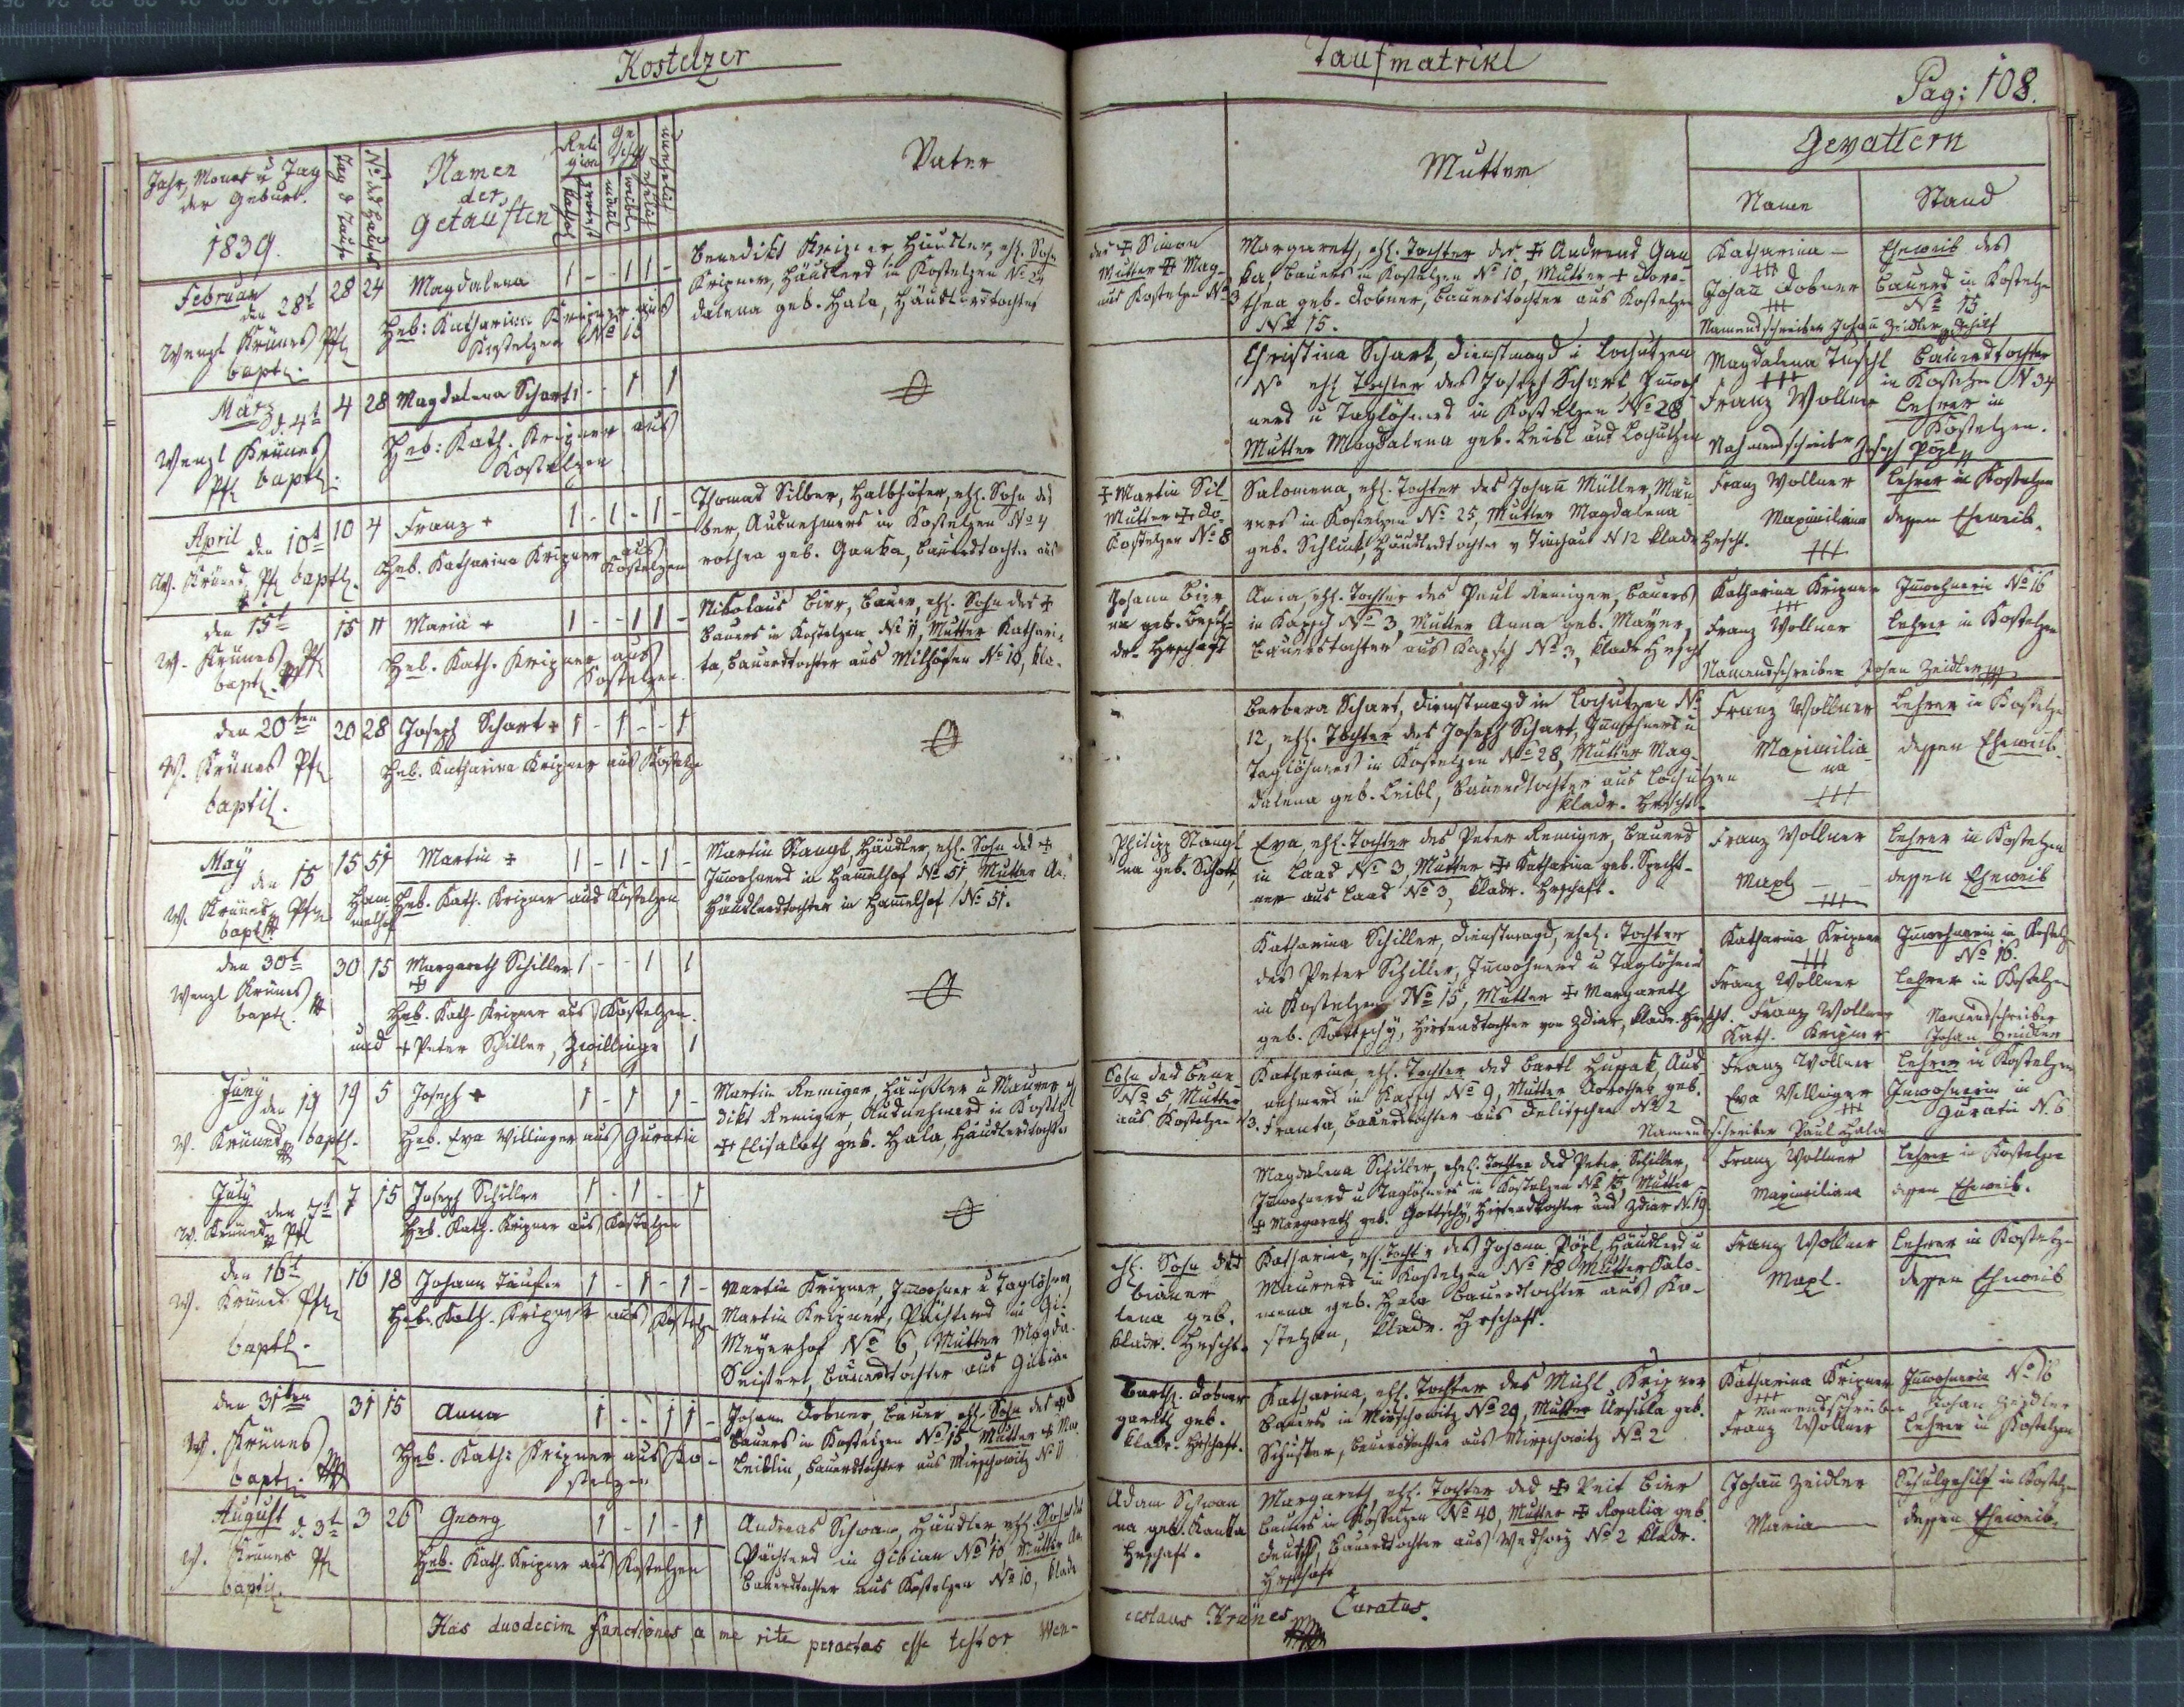 Kostelzer
Taufmatrikl
Pag: 108.
Jahr, Monat u Tag
der Geburt.
1839.
Tag d Taufe
No des Hauses
Namen
der
Getauften
Religion
Kathol
protest
männl
weibl
ehelich
unehelich
Vater
Mutter
Gevattern
Name
Stand
Februar
den 28t
Wenzl Krünes Pf
bapt.
28 24 Magdalena 1 - - 1 1 -
Heb: Katharina Kripner aus
Kostelzen No 16
Benedikt Kripner Häusler, ehl. Sohn
des ✝ Simon
Kripner, Häuslers in Kostelzen No 24
Mutter ✝ Mag-
dalena geb. Hala, Häuslerstochter
aus Kostelzen No 3
Margareth, ehl. Tochter des ✝ Andreas Gau-
ka, Bauers in Kostelzen No 10, Mutter ✝ Doro-
thea geb. Dobner, Bauerstochter aus Kostelzen
No 15.
Katharina -
+++
Johan Dobner
+++
Eheweib des
Bauers in Kostelzen
No 15
Namensschreiber Johan Zeidler Schulf
März
d. 4t
Wenzl Krünes
Pf bapt.
4 28 Magdalena Schart 1 - - 1 1
Heb: Kath. Kripner aus
Kostelzen
Christina Schart, Dienstmagd in Lochutzen
No ehl. Tochter des Joseph Schart Inwoh
ners u Taglöhners in Kostelzen No 28
Mutter Magdalena geb. Leibl aus Lochutzen
Magdalena Tuschl
+++
Franz Wollner
Bauerstochter
in Kostelzen N 34
Lehrer in
Kostelzen.
Nahmensschreiber Joseph Pögl
April
den 10t
W. Krünes Pf bapt.
10 4 Franz + 1 - 1 - 1 -
Heb. Katharina Kripner aus
Kostelzen
Thomas Silber, Halbhöfer, ehl. Sohn des
✝ Martin Sil-
ber, Ausnehmers in Kostelzen No 4
Mutter ✝ Do-
rothea geb. Gauka, Bauerstochter aus
Kostelzen No 8
Salomena, ehl. Tochter des Johan Müller, Mau
rers in Kostelzen No 25, Mutter Magdalena
geb. Schluck, Häuslerstochter v Tinchau N 12 kladr Hrscht.
Franz Wollner
Maximiliana
+++
Lehrer in Kostelzen
dessen Eheweib.
den 15t
W. Krünes Pf
bapt.
15 11 Maria + 1 - - 1 1 -
Heb. Kath. Kripner aus
Kostelzen.
Nikolaus Bier, Bauer, ehl. Sohn des ✝
Johann Bier
Bauers in Kostelzen No 11, Mutter Kathari-
na geb.
ta, Bauerstochter aus Milhöfen No 10, kla-
dr. Hrschaft
Anna, ehl. Tochter des Paul Remiger, Bauers
in Kapsch No 3, Mutter Anna geb. Mayer,
Bauerstochter aus Kapsch No 3, kladr Hrscht
Katharina Kripner
+++
Franz Wollner
Inwohnerin No 16
Lehrer in Kostelzen
Namensschreiber Johan Zeidler
den 20ten
W. Krünes Pf
baptis.
20 28 Joseph Schart + 1 - 1 - - 1
Heb. Katharina Kripner aus Kostelze
Barbara Schart, Dienstmagd in Lochutzen No
12, ehl. Tochter des Joseph Schart, Inwohners u
Taglöhners in Kostelzen No 28, Mutter Mag-
dalena geb. Leibl, Bauerstochter aus Lochutzen
kladr. Hrscht.
Franz Wollner
Maximilia-
na
+++
Lehrer in Kostelze
dessen Eheweib.
May
den 15
W. Krünes Pf
bapt.
15 51
Ham
melhof
Martin + 1 - 1 - 1 -
Heb. Kath. Kripner aus Kostelzen
Martin Stangl, Häusler, ehl. Sohn des ✝
Philipp Stangl
Inwohners in Hammelhof No 51 Mutter An-
na geb. Schott,
Häuslerstochter in Hammelhof No 51.
Eva, ehl. Tochter des Peter Remiger, Bauers
in Laas No 3, Mutter ✝ Katharina geb. Specht-
ner aus Laas No 3, kladr. Hrschaft.
Franz Wollner
Maxl -
+++
Lehrer in Kostelzen
dessen Eheweib
den 30t
Wenzl Krünes
bapt.
30 15 Margareth Schiller 1 - - 1 1
✝
Heb. Kath. Kripner aus Kostelzen.
und + Peter Schiller, Zwillinge 1
Katharina Schiller, Dienstmagd, ehel. Tochter
des Peter Schiller, Inwohners u Taglöhners
in Kostelzen No 15, Mutter ✝ Margareth
geb. Kottschy, Hirtenstochter von Zdiar, kladr. Hrscht.
Katharina Kripner
+++
Franz Wollner
Franz Wollner
Kath. Kripner
Inwohnerin in Kostelz
No 16.
Lehrer in Kostelzen
Namensschreiber
Johan Zeidler
Juny
den 19
W. Krünes bapt.
19 5 Joseph + 1 - 1 1 -
Heb. Eva Willinger aus Guratin
Martin Remiger, Häußler u Maurer, eh
Sohn des Bene-
dikt Remiger, Ausnehmers in Kostelz
No 5 Mutter
✝ Elisabeth geb. Hala, Häuslerstochter
aus Kostelzen N3.
Katharina eh. Tochter des Bartl Hupak, Aus-
nehmers in Kapsch No 9, Mutter Dorothea geb.
Franta, Bauerstochter aus Delitschen No 2
Franz Wollner
Eva Willinger
+++
Lehrer in Kostelzen
Inwohnerin in
Guratin N. 6
Namensschreiber Paul Hala
July
den 7t
W. Krünes Pf
7 15 Joseph Schiller 1 - 1 - - 1
Heb. Kath. Kripner aus Kostelzen
Magdalena Schiller, ehel. Tochter des Peter Schiller,
Inwohners u Taglöhners in Kostelzen No 15 Mutter
✝ Margareth geb. Gottschy, Hirtenstochter aus Zdiar N. 19.
Franz Wollner
Maximiliana
Lehrer in Kostelzen
dessen Eheweib.
den 16t
W. Krünes Pf
bapt.
16 18 Johann Täufer 1 - 1 - 1 -
Heb. Kath. Kripner aus Kostelzen
Martin Kripner, Inwohner u Taglöhner,
ehl. Sohn des
Martin Kripner, Pächters in Gi-
bianer
Meyerhof No 6, Mutter Magda-
lena geb.
Seistert, Bauerstochter aus Gibian
kladr. Hrscht.
Katharina, ehl. Tochtr des Johann Pögl, Häuslers u
Maurers in Kostelzen No 18 Mutter Salo-
mena geb. Hala Bauerstochter aus Ko-
stelzen, kladr. Hrschaft.
Franz Wollner
Maxl.
Lehrer in Kostelze
dessen Eheweib
den 31ten
W. Krünes
bapt.
31 15 Anna 1 - - 1 1 -
Heb. Kath: Kripner aus Ko-
stelzen
Johann Dobner, Bauer, ehl. Sohn des
Barth. Dobner
Bauers in Kostelzen No 15 Mutter ✝ Mar-
gareth geb.
Leiblin, Bauerstochter aus Mirschowitz No 11
kladr. Hrschaft.
Katharina, ehl. Tochter des Michl Kripner
Bauers in Mirschowitz No 20, Mutter Ursula geb.
Schuster, Bauerstochter aus Mirschowitz No 2
Katharina Kripner
+++
Namensschreiber Johan Zeidler
Franz Wollner
Inwohnerin No 16
Lehrer in Kostelzen
August
d. 3t
W. Krünes Pf
baptis.
3 26 Georg 1 - 1 - 1
Heb. Kath. Kripner aus Kostelzen
Andreas Schwan, Häusler ehl. Sohn des
Adam Schwan
Pächters in Gibian No 10 Mutter An-
na geb. Kauka
Bauerstochter aus Kostelzen No 10, kladr
Hrschaft.
Margareth, ehl. Tochter des ✝ Veit Bier
Bauers in Kostelzen No 40, Mutter ✝ Rosalia geb.
Deutsch, Bauerstochter aus Wedhorz No 2 kladr.
Hrschaft
Johan Zeidler
Maria
Schulgehilf in Kostelze
dessen Eheweib.
Has duodecim functiones a me rite peractas esse testor Wen-
ceslaus Krünes Curatus.